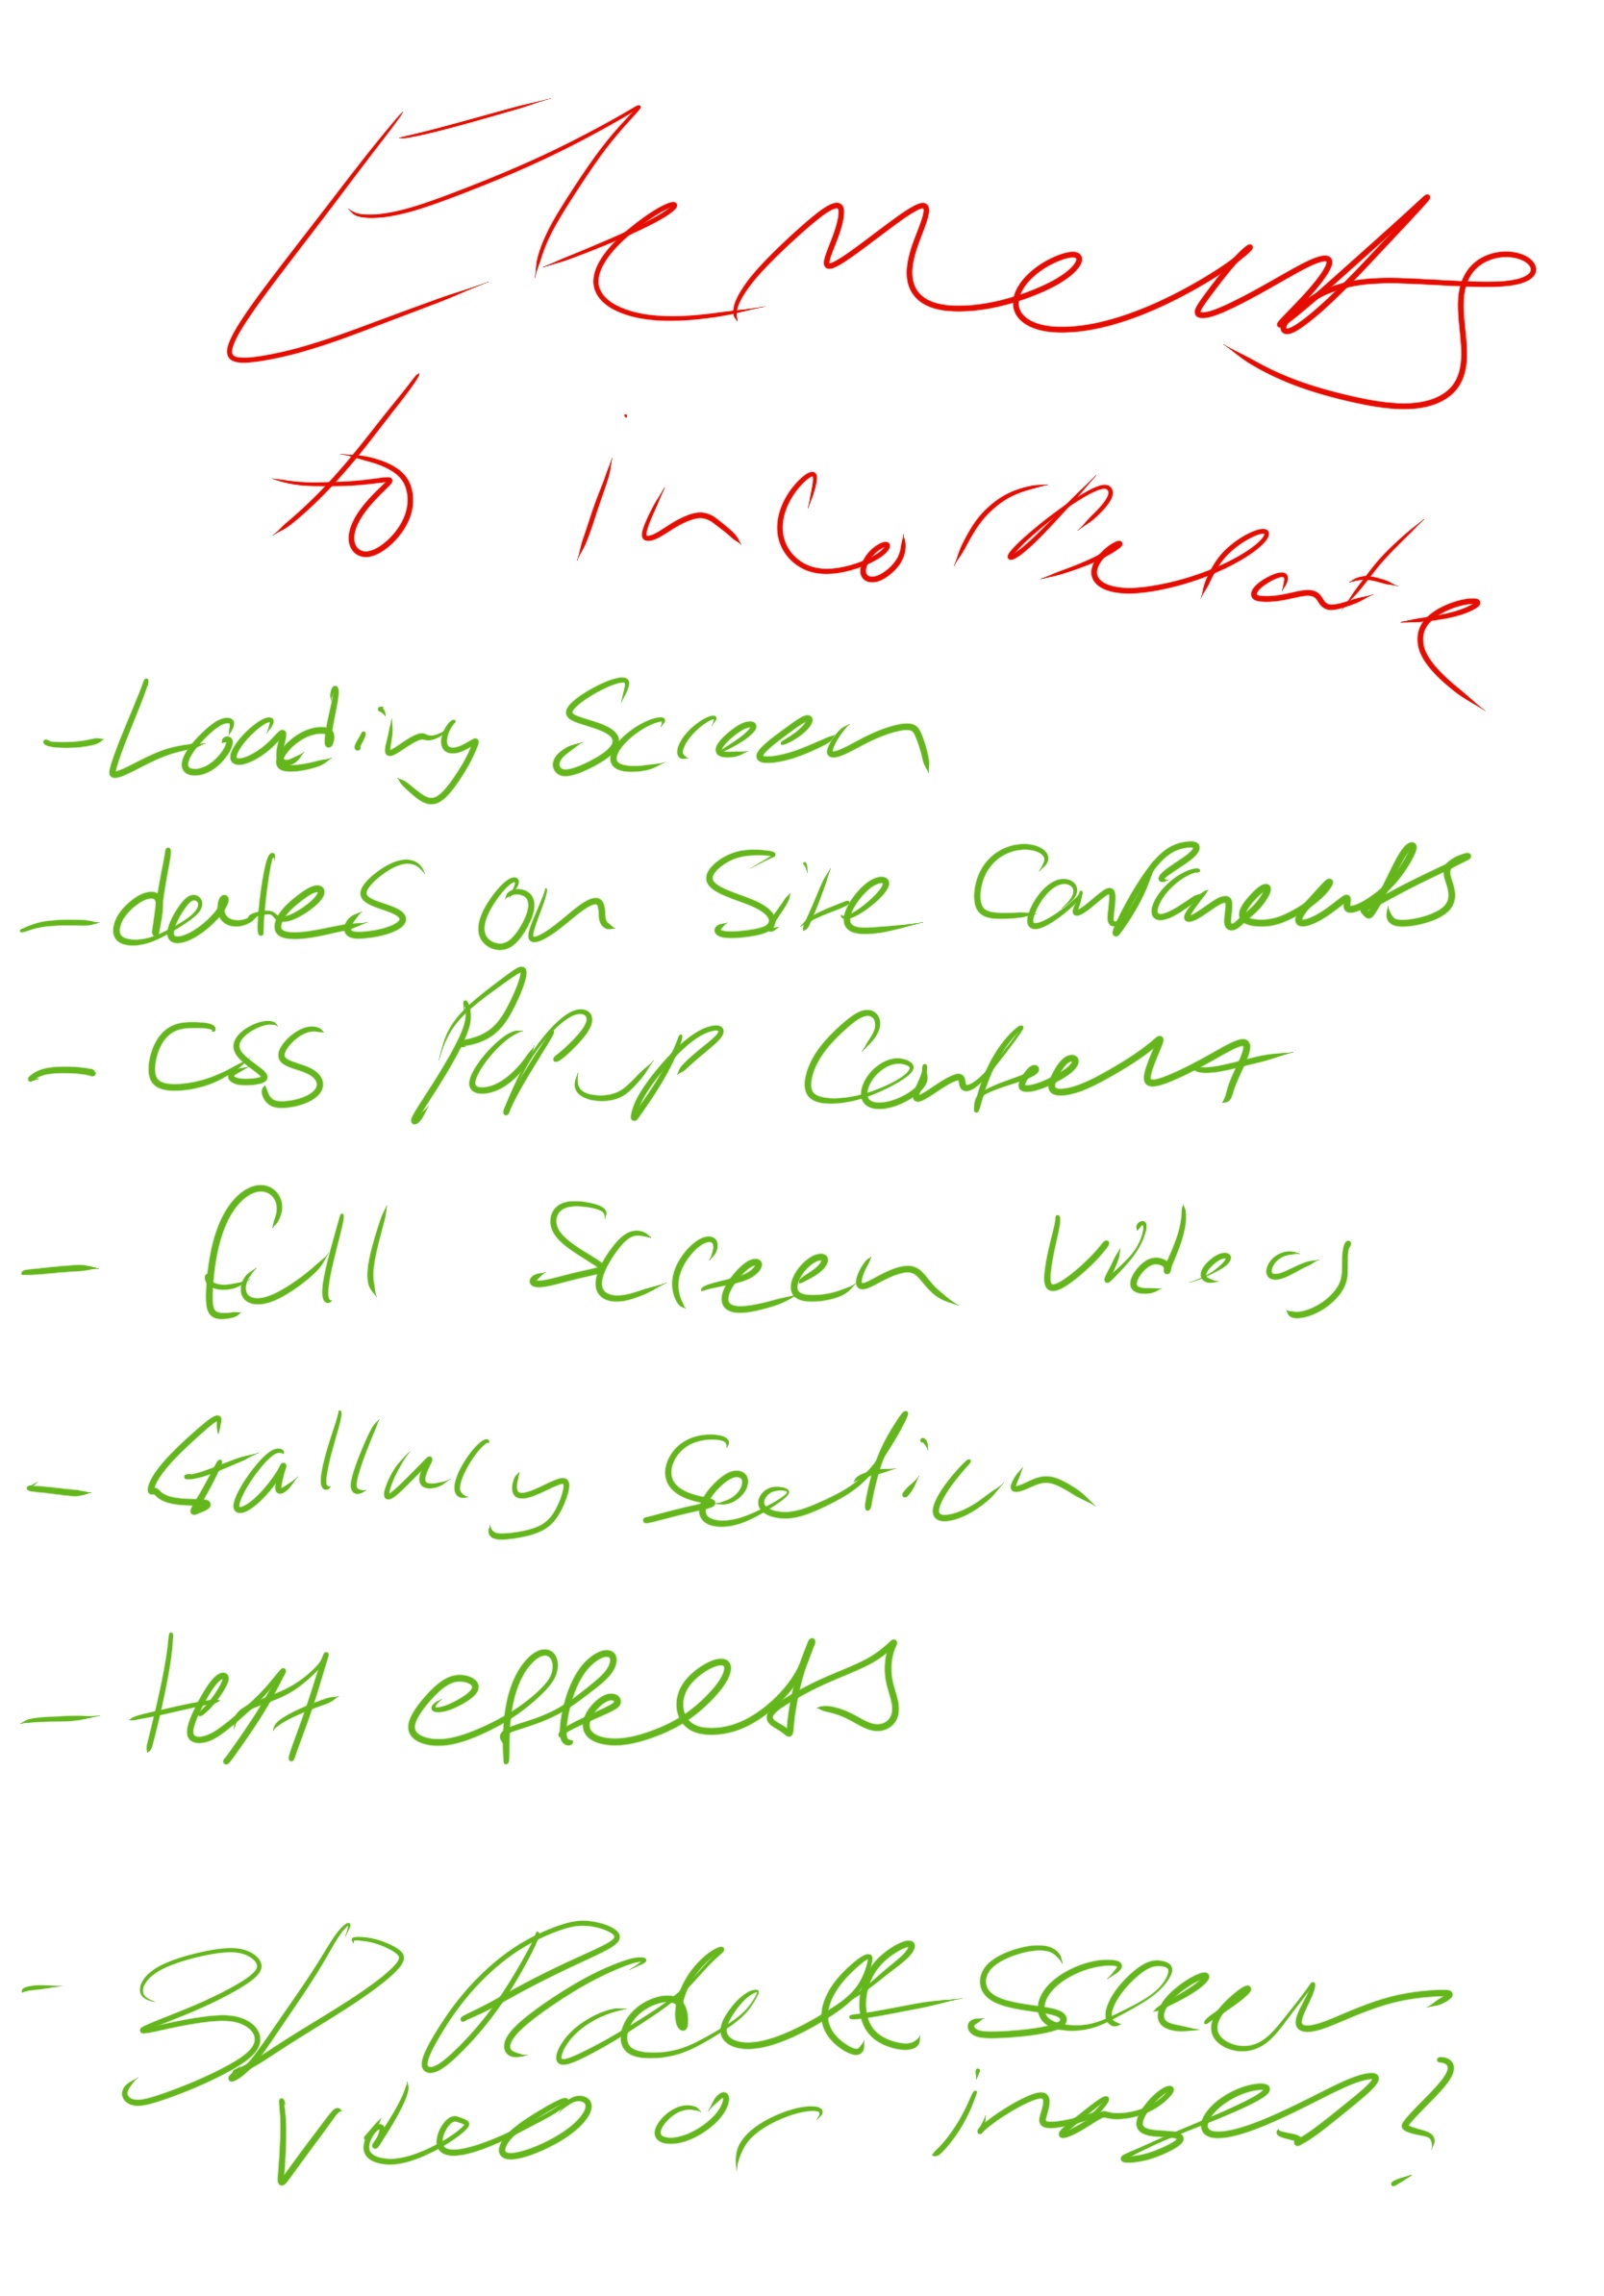 Elements
to incorporate
- Loading Screen
- dates on Site Components
- CSS Popup Content
- Full Screen Video
- Gallery Section
- text effects
- 3D Product Scene
video or images?